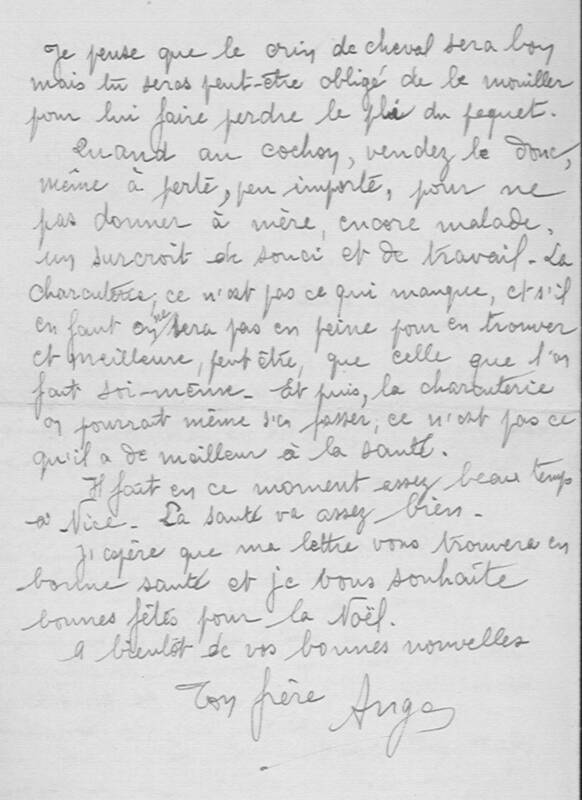 Je pense que le crin de cheval sera bon
mais tu seras peut-être obligé de le mouiller
pour lui faire perdre le pli du paquet.
Quand au cochon, vendez le donc,
même à perte, peu importe, pour ne
pas donner à mère, encore malade,
un surcroit de souci et de travail - La
charcuterie, ce n'est pas ce qui manque, et s'il
en faut on ne sera pas en peine pour en trouver
et meilleure, peut être, que celle que l'on
fait soi-même - Et puis, la charcuterie
on pourrait même s'en passer, ce n'est pas ce
qu'il a de meilleur à la santé.
Il fait en ce moment assez beau temps
à Nice - La santé va assez bien -
J'espère que ma lettre vous trouvera en
bonne santé et je vous souhaite
bonnes fêtes pour la Noël.
A bientôt de vos bonnes nouvelles
Ton frère Ange